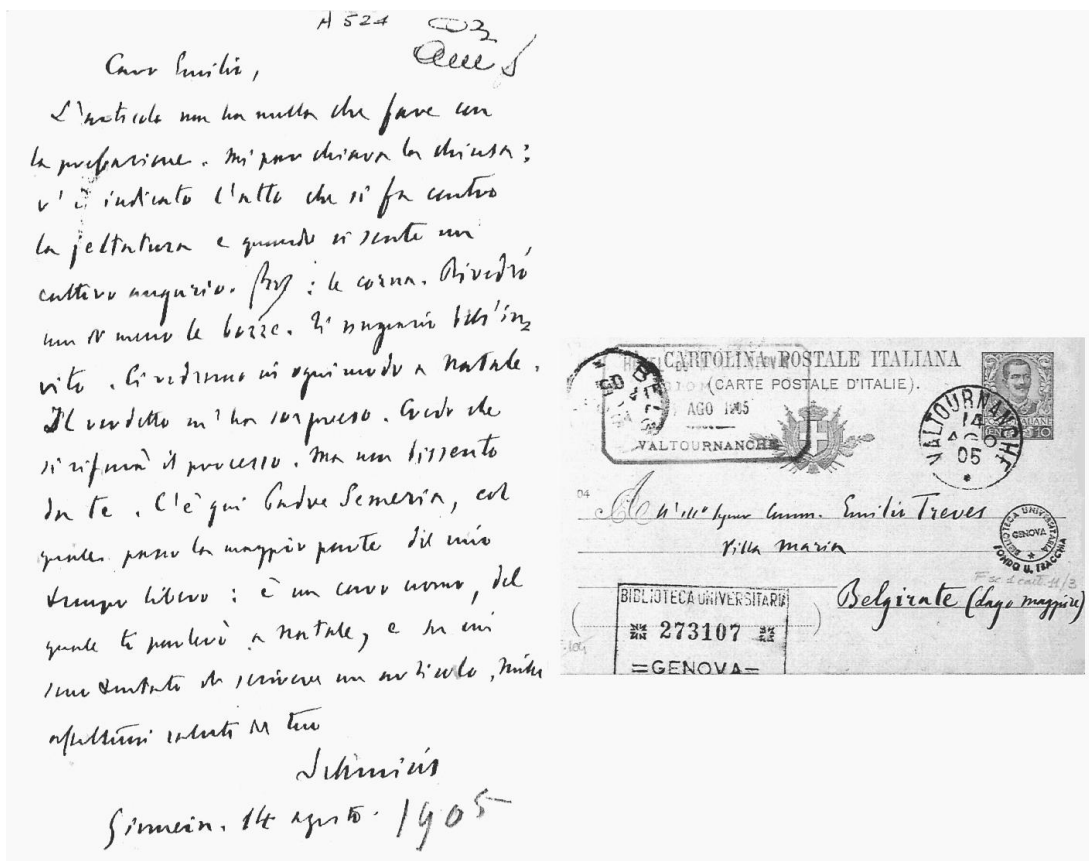 A 524
Caro Emilio,
L'articolo non ha nulla che fare con
la prefazione. Mi par chiara la chiusa:
v'è indicato l'atto che si fa contro
la jettatura e quando si sente un
cattivo augurio. : le corna. Rivedrò
non di meno le bozze. Ti ringrazio dell'in=
vito. Ci vedremo in ogni modo a Natale.
Il verdetto m'ha sorpreso. Credo che
si rifarà il processo. Ma non dissento
da te. C'è qui Padre Semeria, col
quale passo la maggior parte del mio
tempo libero: è un caro uomo, del
quale ti parlerò a Natale, e su cui
sono tentato di scrivere un articolo. Mille
affettuosi saluti dal tuo
14 agosto. 1905
CARTOLINA POSTALE ITALIANA
(CARTE POSTALE D'ITALIE).
AGO 1905
VALTOURNANCHE
VALTOURNANCHE
14
AGO
05
04
All'Ill.º Signor Comm. Emilio Treves
Villa Maria
Belgirate (Lago Maggiore)
BIBLIOTECA UNIVERSITARIA
GENOVA
FONDO U. FRACCHIA
BIBLIOTECA UNIVERSITARIA
273107
=GENOVA=